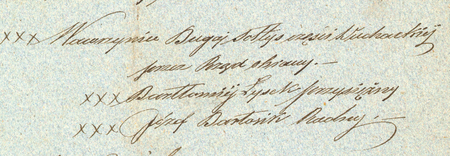 xxx Wawrzyniec Bugaj Sołtys części Suchackiej
przez Rząd obrany. —
xxx Bartłomiéj Łysek przysiężny
xxx Józef Bartosik Radny. —